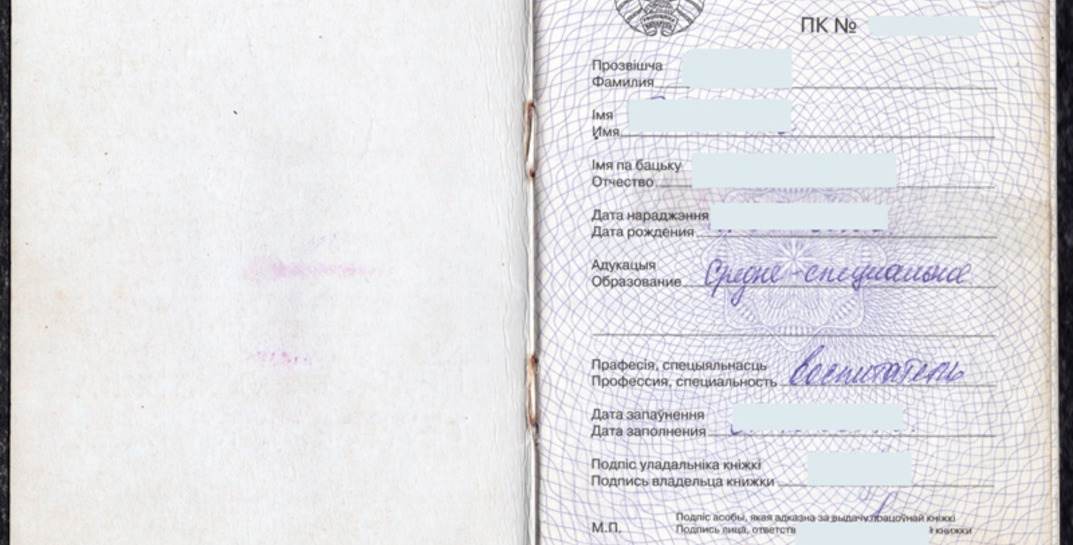 ПК №
Прозвішча
Фамилия
Імя
Имя
Імя па бацьку
Отчество
Дата нараджэння
Дата рождения
Адукацыя
Образование Средне-специальное
Прафесія, спецыяльнасць
Профессия, специальность воспитатель
Дата запаўнення
Дата заполнения
Подпіс уладальніка кніжкі
Подпись владельца книжки
Подпіс асобы, якая адказна за выдачу працоўнай кніжкі
М.П. Подпись лица, ответств книжки